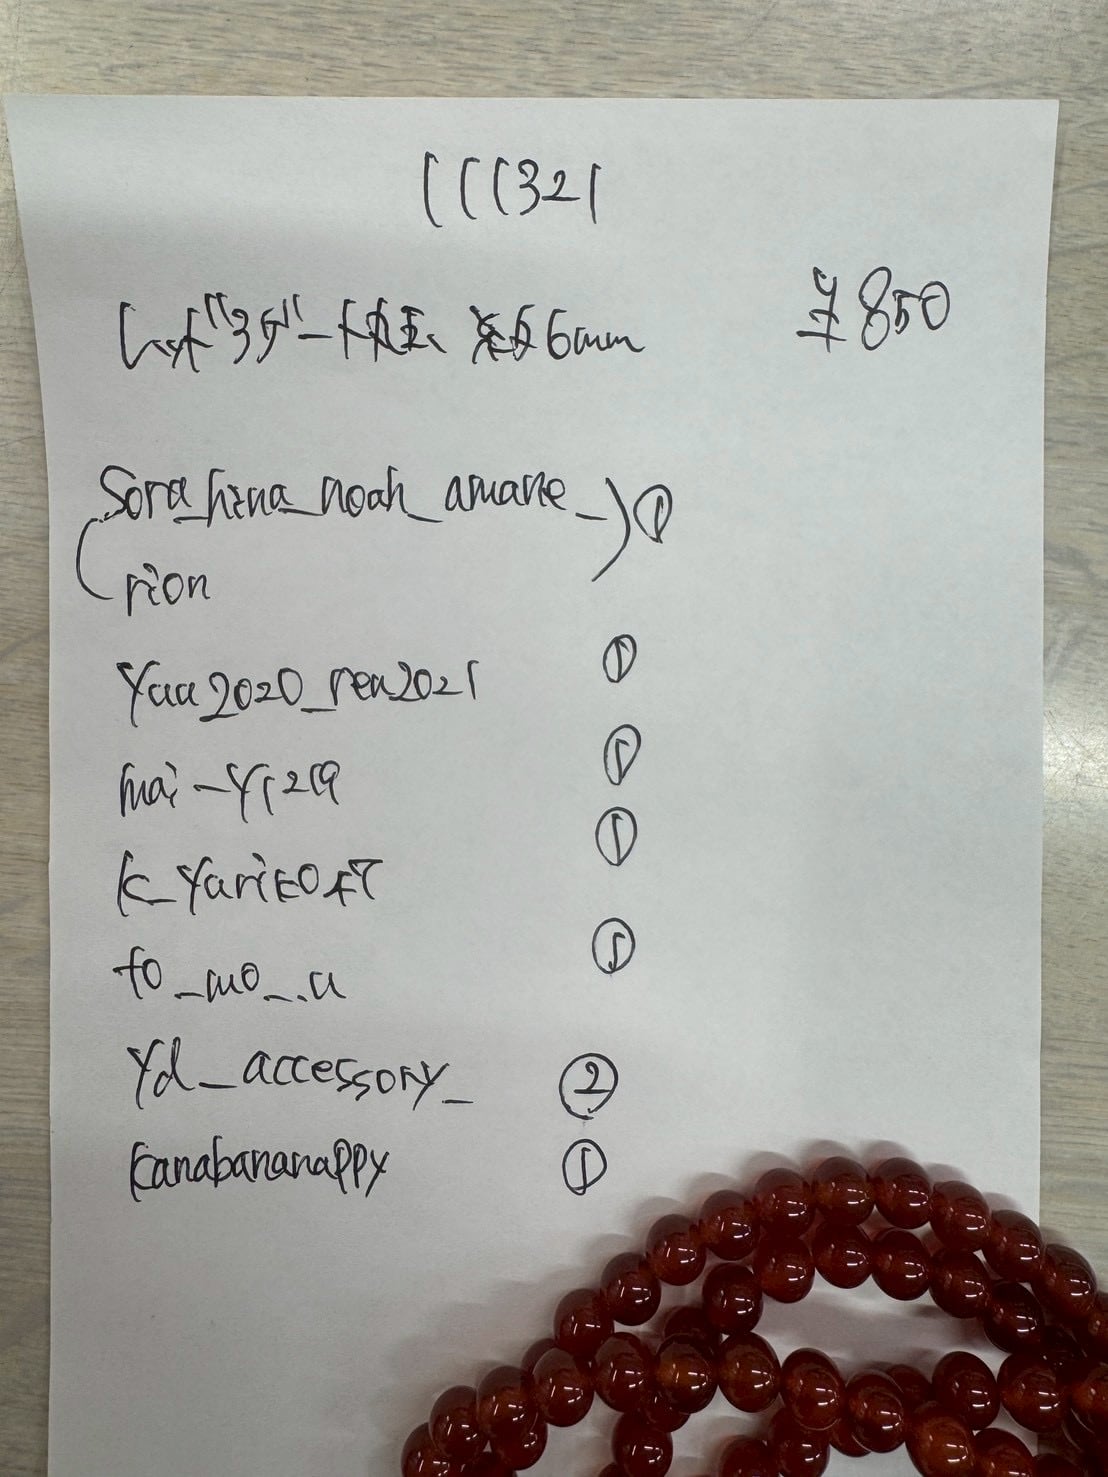 111321
レッド"37"ード丸玉 約6mm ¥850
Sora_hina_noah_amane_ ①
rion
Yaa2020_rea2021 ①
mai-y1219 ①
k_yarik047 ①
to_mo_.u ①
yd_accessory_ ②
kanabananappy ①